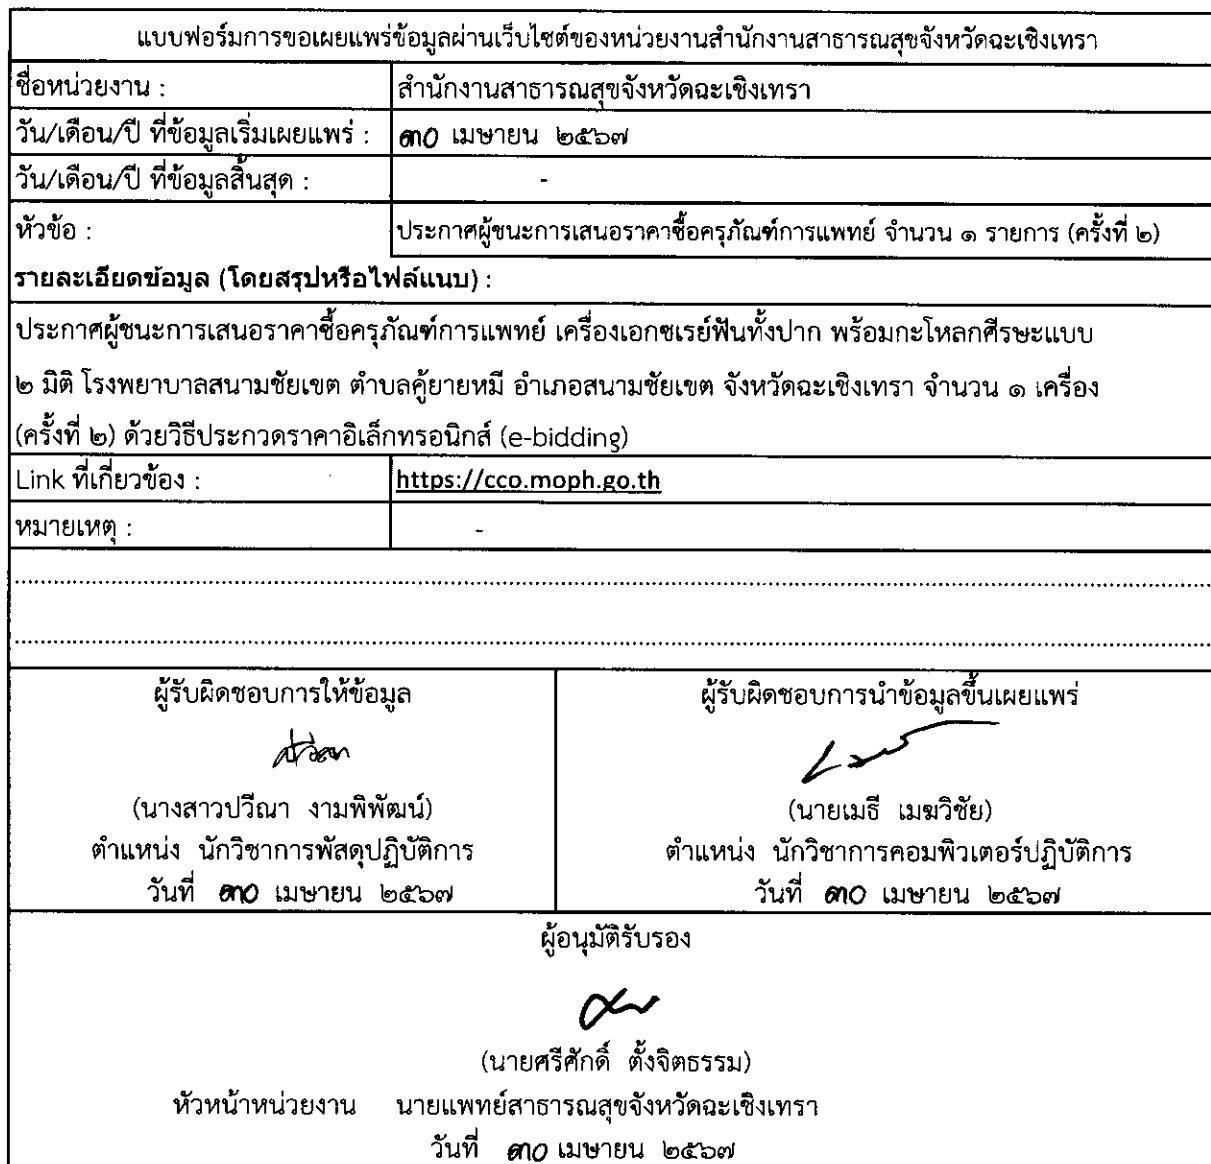 แบบฟอร์มการขอเผยแพร่ข้อมูลผ่านเว็บไซต์ของหน่วยงานสำนักงานสาธารณสุขจังหวัดฉะเชิงเทรา
ชื่อหน่วยงาน : สำนักงานสาธารณสุขจังหวัดฉะเชิงเทรา
วัน/เดือน/ปี ที่ข้อมูลเริ่มเผยแพร่ : ๓๐ เมษายน ๒๕๖๗
วัน/เดือน/ปี ที่ข้อมูลสิ้นสุด : -
หัวข้อ : ประกาศผู้ชนะการเสนอราคาซื้อครุภัณฑ์การแพทย์ จำนวน ๑ รายการ (ครั้งที่ ๒)
รายละเอียดข้อมูล (โดยสรุปหรือไฟล์แนบ) :
ประกาศผู้ชนะการเสนอราคาซื้อครุภัณฑ์การแพทย์ เครื่องเอกซเรย์ฟันทั้งปาก พร้อมกะโหลกศีรษะแบบ
๒ มิติ โรงพยาบาลสนามชัยเขต ตำบลคู้ยายหมี อำเภอสนามชัยเขต จังหวัดฉะเชิงเทรา จำนวน ๑ เครื่อง
(ครั้งที่ ๒) ด้วยวิธีประกวดราคาอิเล็กทรอนิกส์ (e-bidding)
Link ที่เกี่ยวข้อง : https://cco.moph.go.th
หมายเหตุ : -
ผู้รับผิดชอบการให้ข้อมูล
ปวีณา
(นางสาวปวีณา งามพิพัฒน์)
ตำแหน่ง นักวิชาการพัสดุปฏิบัติการ
วันที่ ๓๐ เมษายน ๒๕๖๗
ผู้รับผิดชอบการนำข้อมูลขึ้นเผยแพร่
(นายเมธี เมฆวิชัย)
ตำแหน่ง นักวิชาการคอมพิวเตอร์ปฏิบัติการ
วันที่ ๓๐ เมษายน ๒๕๖๗
ผู้อนุมัติรับรอง
(นายศรีศักดิ์ ตั้งจิตธรรม)
หัวหน้าหน่วยงาน นายแพทย์สาธารณสุขจังหวัดฉะเชิงเทรา
วันที่ ๓๐ เมษายน ๒๕๖๗